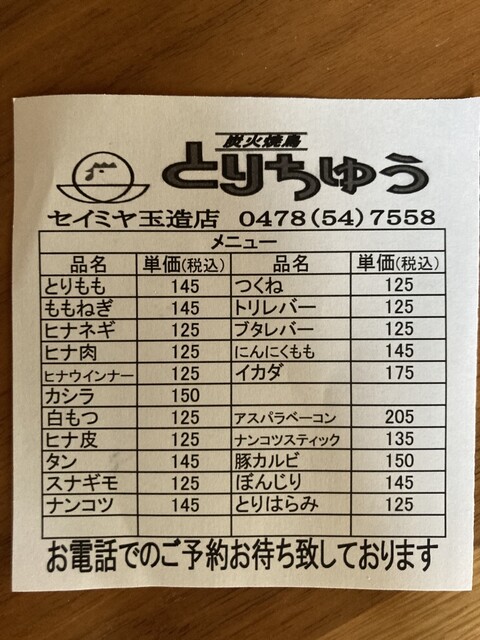 炭火焼鳥
とりちゅう
セイミヤ玉造店 0478(54)7558
メニュー
品名 単価(税込) 品名 単価(税込)
とりもも 145 つくね 125
ももねぎ 145 トリレバー 125
ヒナネギ 125 ブタレバー 125
ヒナ肉 125 にんにくもも 145
ヒナウインナー 125 イカダ 175
カシラ 150
白もつ 125 アスパラベーコン 205
ヒナ皮 125 ナンコツスティック 135
タン 145 豚カルビ 150
スナギモ 125 ぼんじり 145
ナンコツ 145 とりはらみ 125
お電話でのご予約お待ち致しております